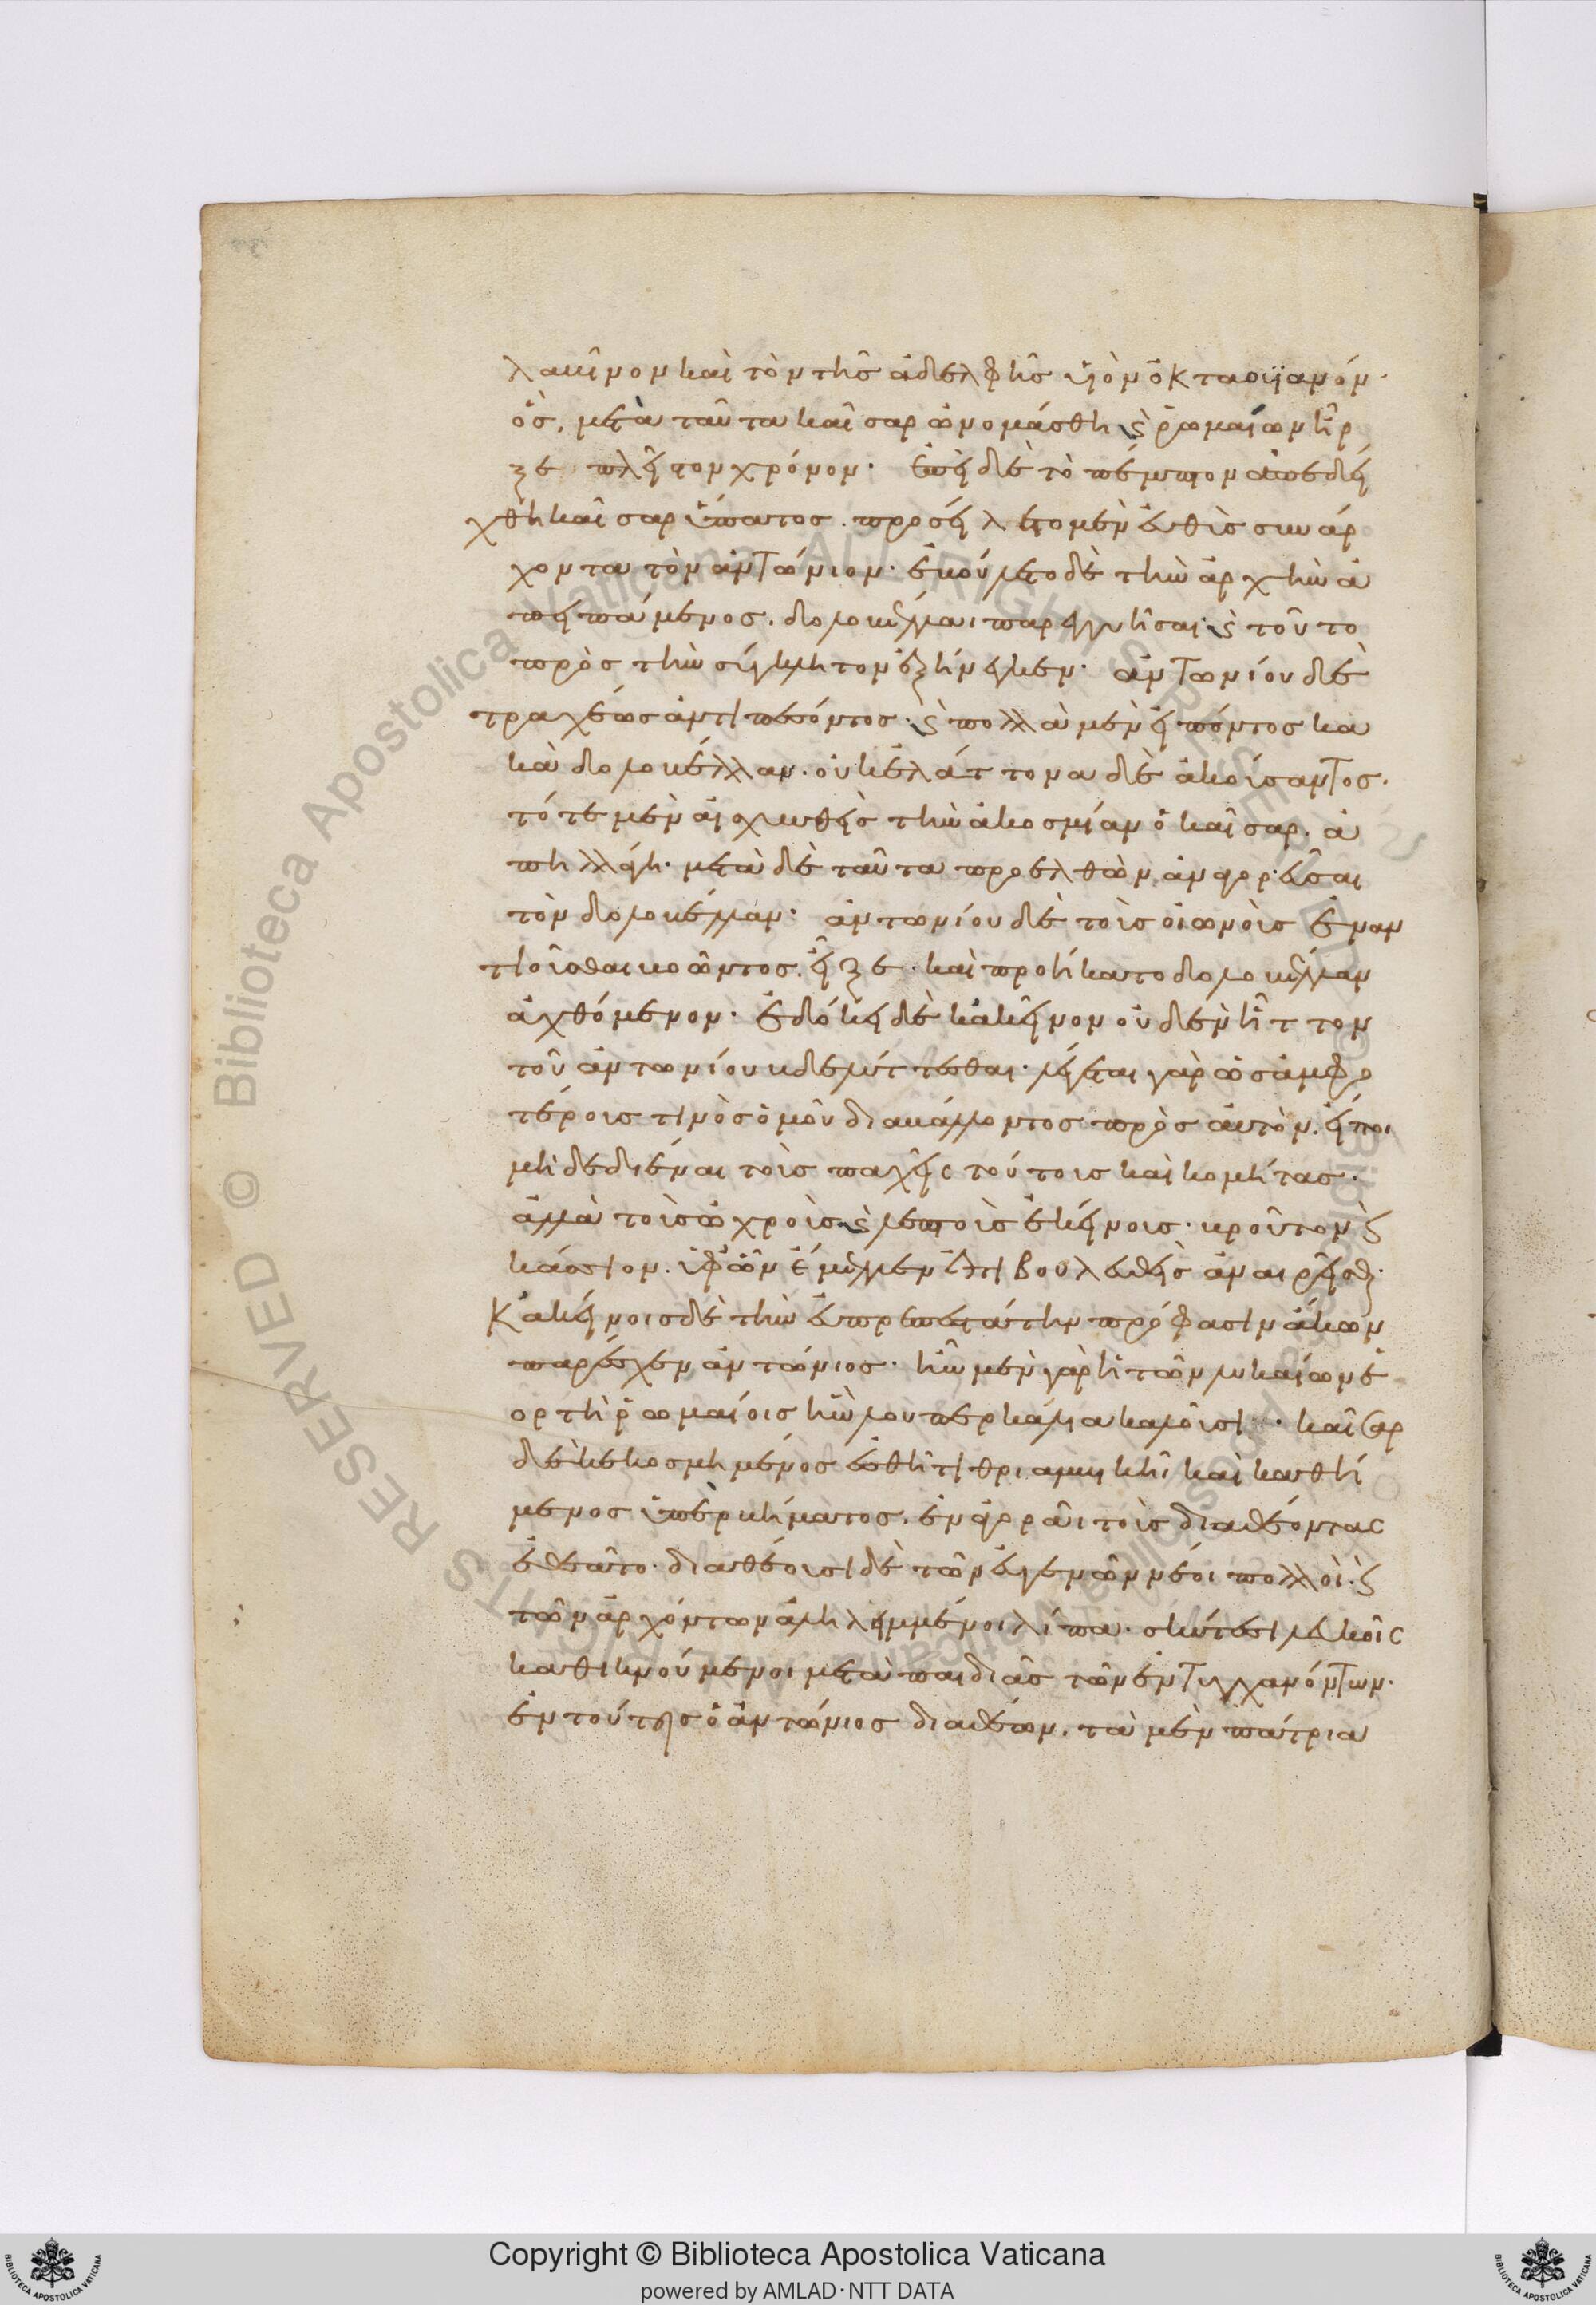 λακῖνον καὶ τὸν τῆς ἀδελφῆς υἱὸν ὀκταουϊανόν·
ὃς, μετὰ ταῦτα καῖσαρ ὠνομάσθη κ̀ ῥωμαίων ἦρ
ξε πλεῖστον χρόνον· ἐπεὶ δὲ τὸ πέμπτον ἀπεδεί
χθη καῖσαρ ὕπατος· προσείλετο μὲν εὐθὺς συνάρ
χοντα τὸν ἀντώνιον· ἐβούλετο δὲ τὴν ἀρχὴν ἀ
πειπάμενος. δολοβέλλαι παρεγγυῆσαι· κ̀ τοῦτο
πρὸς τὴν σύγκλητον ἐξήνεγκεν· ἀντωνίου δὲ
τραχέως ἀντιπεσόντος· κ̀ πολλὰ μὲν εἰπόντος κα
κὰ δολοβέλλαν· οὐκ ἐλάττονα δὲ ἀκούσαντος·
τότε μὲν αἰσχυνθεὶς τὴν ἀκοσμίαν ὁ καῖσαρ· ἀ
πηλλάγη· μετὰ δὲ ταῦτα προελθὼν ἀναγορεῦσαι
τὸν δολοβέλλαν· ἀντωνίου δὲ τοὺς οἰωνοὺς ἐναν
τιοῦσθαι βοῶντος. εἶξε· καὶ προήκατο δολοβέλλαν
ἀχθόμενον· ἐδόκει δὲ κἀκεῖνον οὐδὲν ἧττον
τοῦ ἀντωνίου βδελύττεσθαι· λέγεται γὰρ ὡς ἀμφο
τέρους τινὸς ὁμοῦ διαβάλλοντος πρὸς αὐτὸν. εἴποι
μὴ δεδιέναι τοὺς παχεῖς τούτους καὶ κομήτας·
ἀλλὰ τοὺς ὠχροὺς κ̀ λεπτοὺς ἐκείνους· βροῦτον κ̀
κάσσιον. ὑφ' ὧν ἔμελλεν ἐπιβουλευθεὶς ἀναιρεῖσθ·
Κἀκείνοις δὲ τὴν εὐπρεπεστάτην πρόφασιν ἄκων
παρέσχεν ἀντώνιος· ἦν μὲν γὰρ ἡ τῶν λυκαίων ἑ
ορτὴ ῥωμαίοις ἣν λουπερκάλια καλοῦσι· καῖσαρ
δὲ κεκοσμημένος ἐσθῆτι θριαμβικῆ καὶ καθή
μενος ὑπὲρ βήματος. ἐν ἀγορᾶι τοὺς διαθέοντας
ἐθεᾶτο· διαθέουσι δὲ τῶν εὐγενῶν νέοι πολλοὶ. κ̀
τῶν ἀρχόντων ἀληλειμμένοι λίπα· σκύτεσι λασίοις
καθικνούμενοι μετὰ παιδιᾶς τῶν ἐντυγχανόντων·
ἐν τούτοις ὁ ἀντώνιος διαθέων. τὰ μὲν πάτρια
Copyright © Biblioteca Apostolica Vaticana
powered by AMLAD·NTT DATA